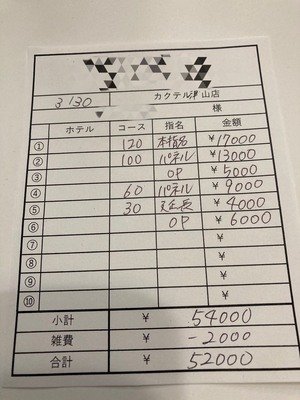 3/30 カクテル津山店
様
ホテル コース 指名 金額
① 120 本指名 ¥17000
② 100 パネル ¥13000
③ OP ¥5000
④ 60 パネル ¥9000
⑤ 30 延長 ¥4000
⑥ OP ¥6000
⑦ ¥
⑧ ¥
⑨ ¥
⑩ ¥
小計 ¥ 54000
雑費 ¥ -2000
合計 ¥ 52000